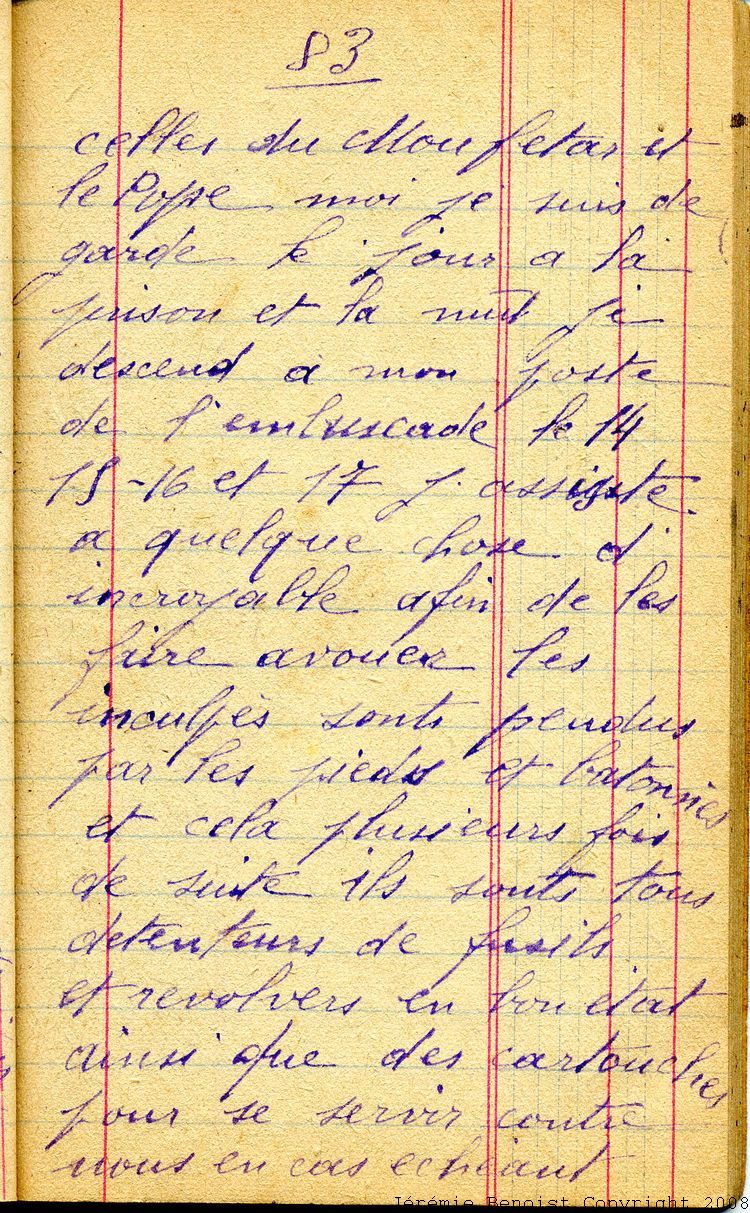 83
celles du Moufetar et
le Pope moi je suis de
garde le jour a la
prison et la nuit je
descend a mon poste
de l'embuscade le 14
15-16 et 17 j'assiste
a quelque chose d'
incroyable afin de les
faire avouer les
inculpès sonts pendus
par les pieds et batonnès
et cela plusieurs fois
de suite ils sonts tous
detenteurs de fusils
et revolvers en bon état
ainsi que des cartouches
pour se servir contre
nous en cas echéant
Jérémie Benoist Copyright 2008